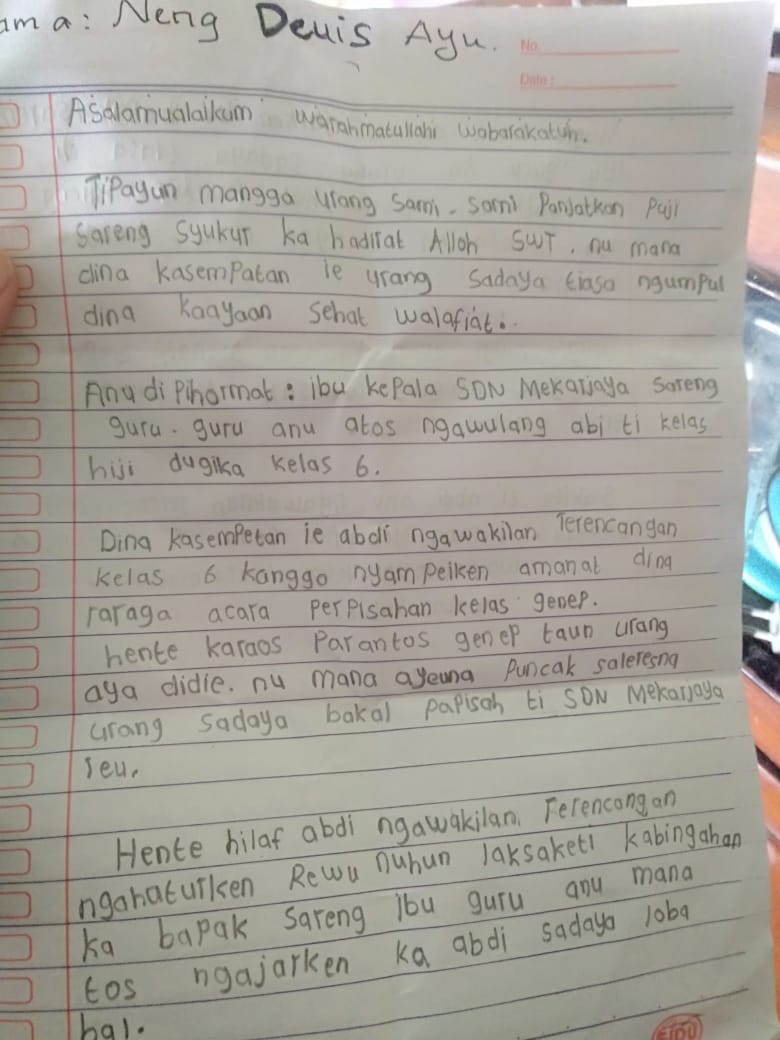 ama: Neng Deuis Ayu.
No.
Date:
Asalamualaikum warahmatullahi wabarakatuh.
Tipayun mangga urang sami-sami Panjatkan Puji
Sareng Syukur ka hadirat Alloh SWT. nu mana
dina kasempatan ie urang sadaya tiasa ngumpul
dina kaayaan sehat walafiat.
Anu di Pihormat: ibu kepala SDN Mekarjaya Sareng
guru-guru anu atos ngawulang abi ti kelas
hiji dugika kelas 6.
Dina kasempetan ie abdi ngawakilan Terencangan
kelas 6 kanggo nyampeiken amanat dina
raraga acara perpisahan kelas genep.
hente karaos Parantos genep taun urang
aya didie. nu mana ayeuna Puncak saleresna
urang sadaya bakal papisah ti SDN Mekarjaya
ieu.
Hente hilaf abdi ngawakilan Terencangan
ngahaturken Rewu nuhun laksaketi kabingahan
ka bapak sareng ibu guru anu mana
tos ngajarken ka abdi sadaya loba
hal.